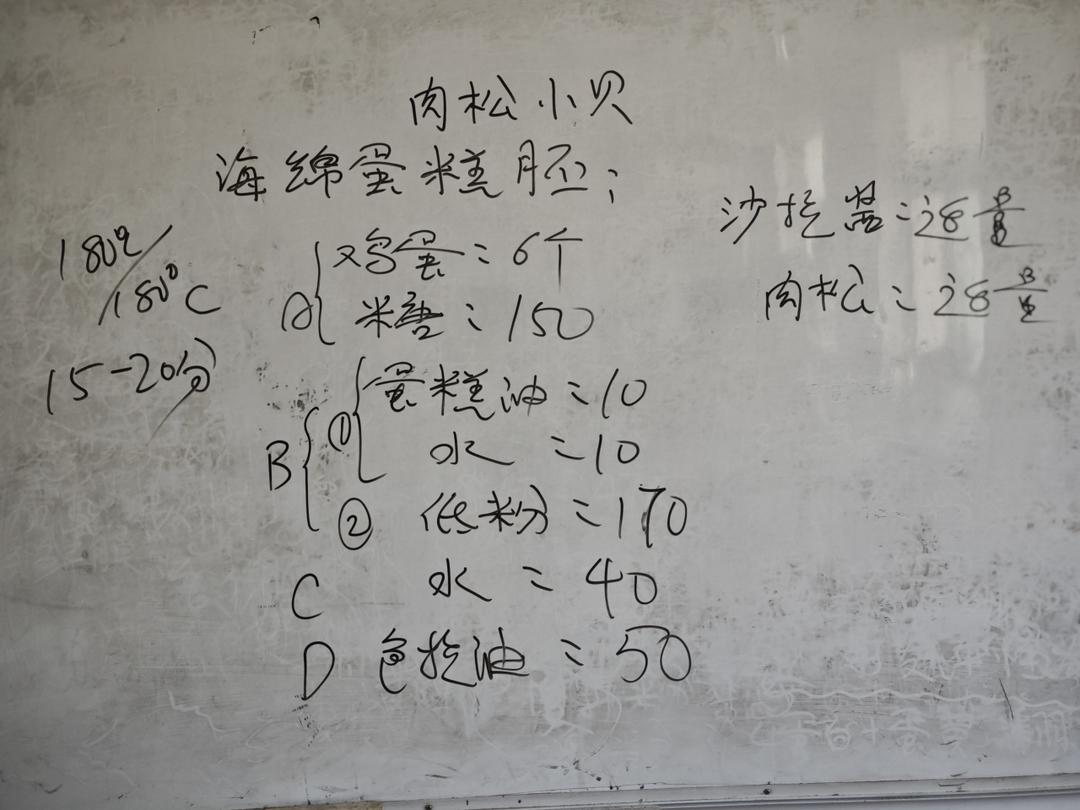 肉松小贝
海绵蛋糕胚：
A{鸡蛋：6个
糖：150
B{①{蛋糕油：10
水：10
②低粉：170
C 水：40
D 色拉油：50
180℃/180℃
15-20分
沙拉酱：适量
肉松：适量